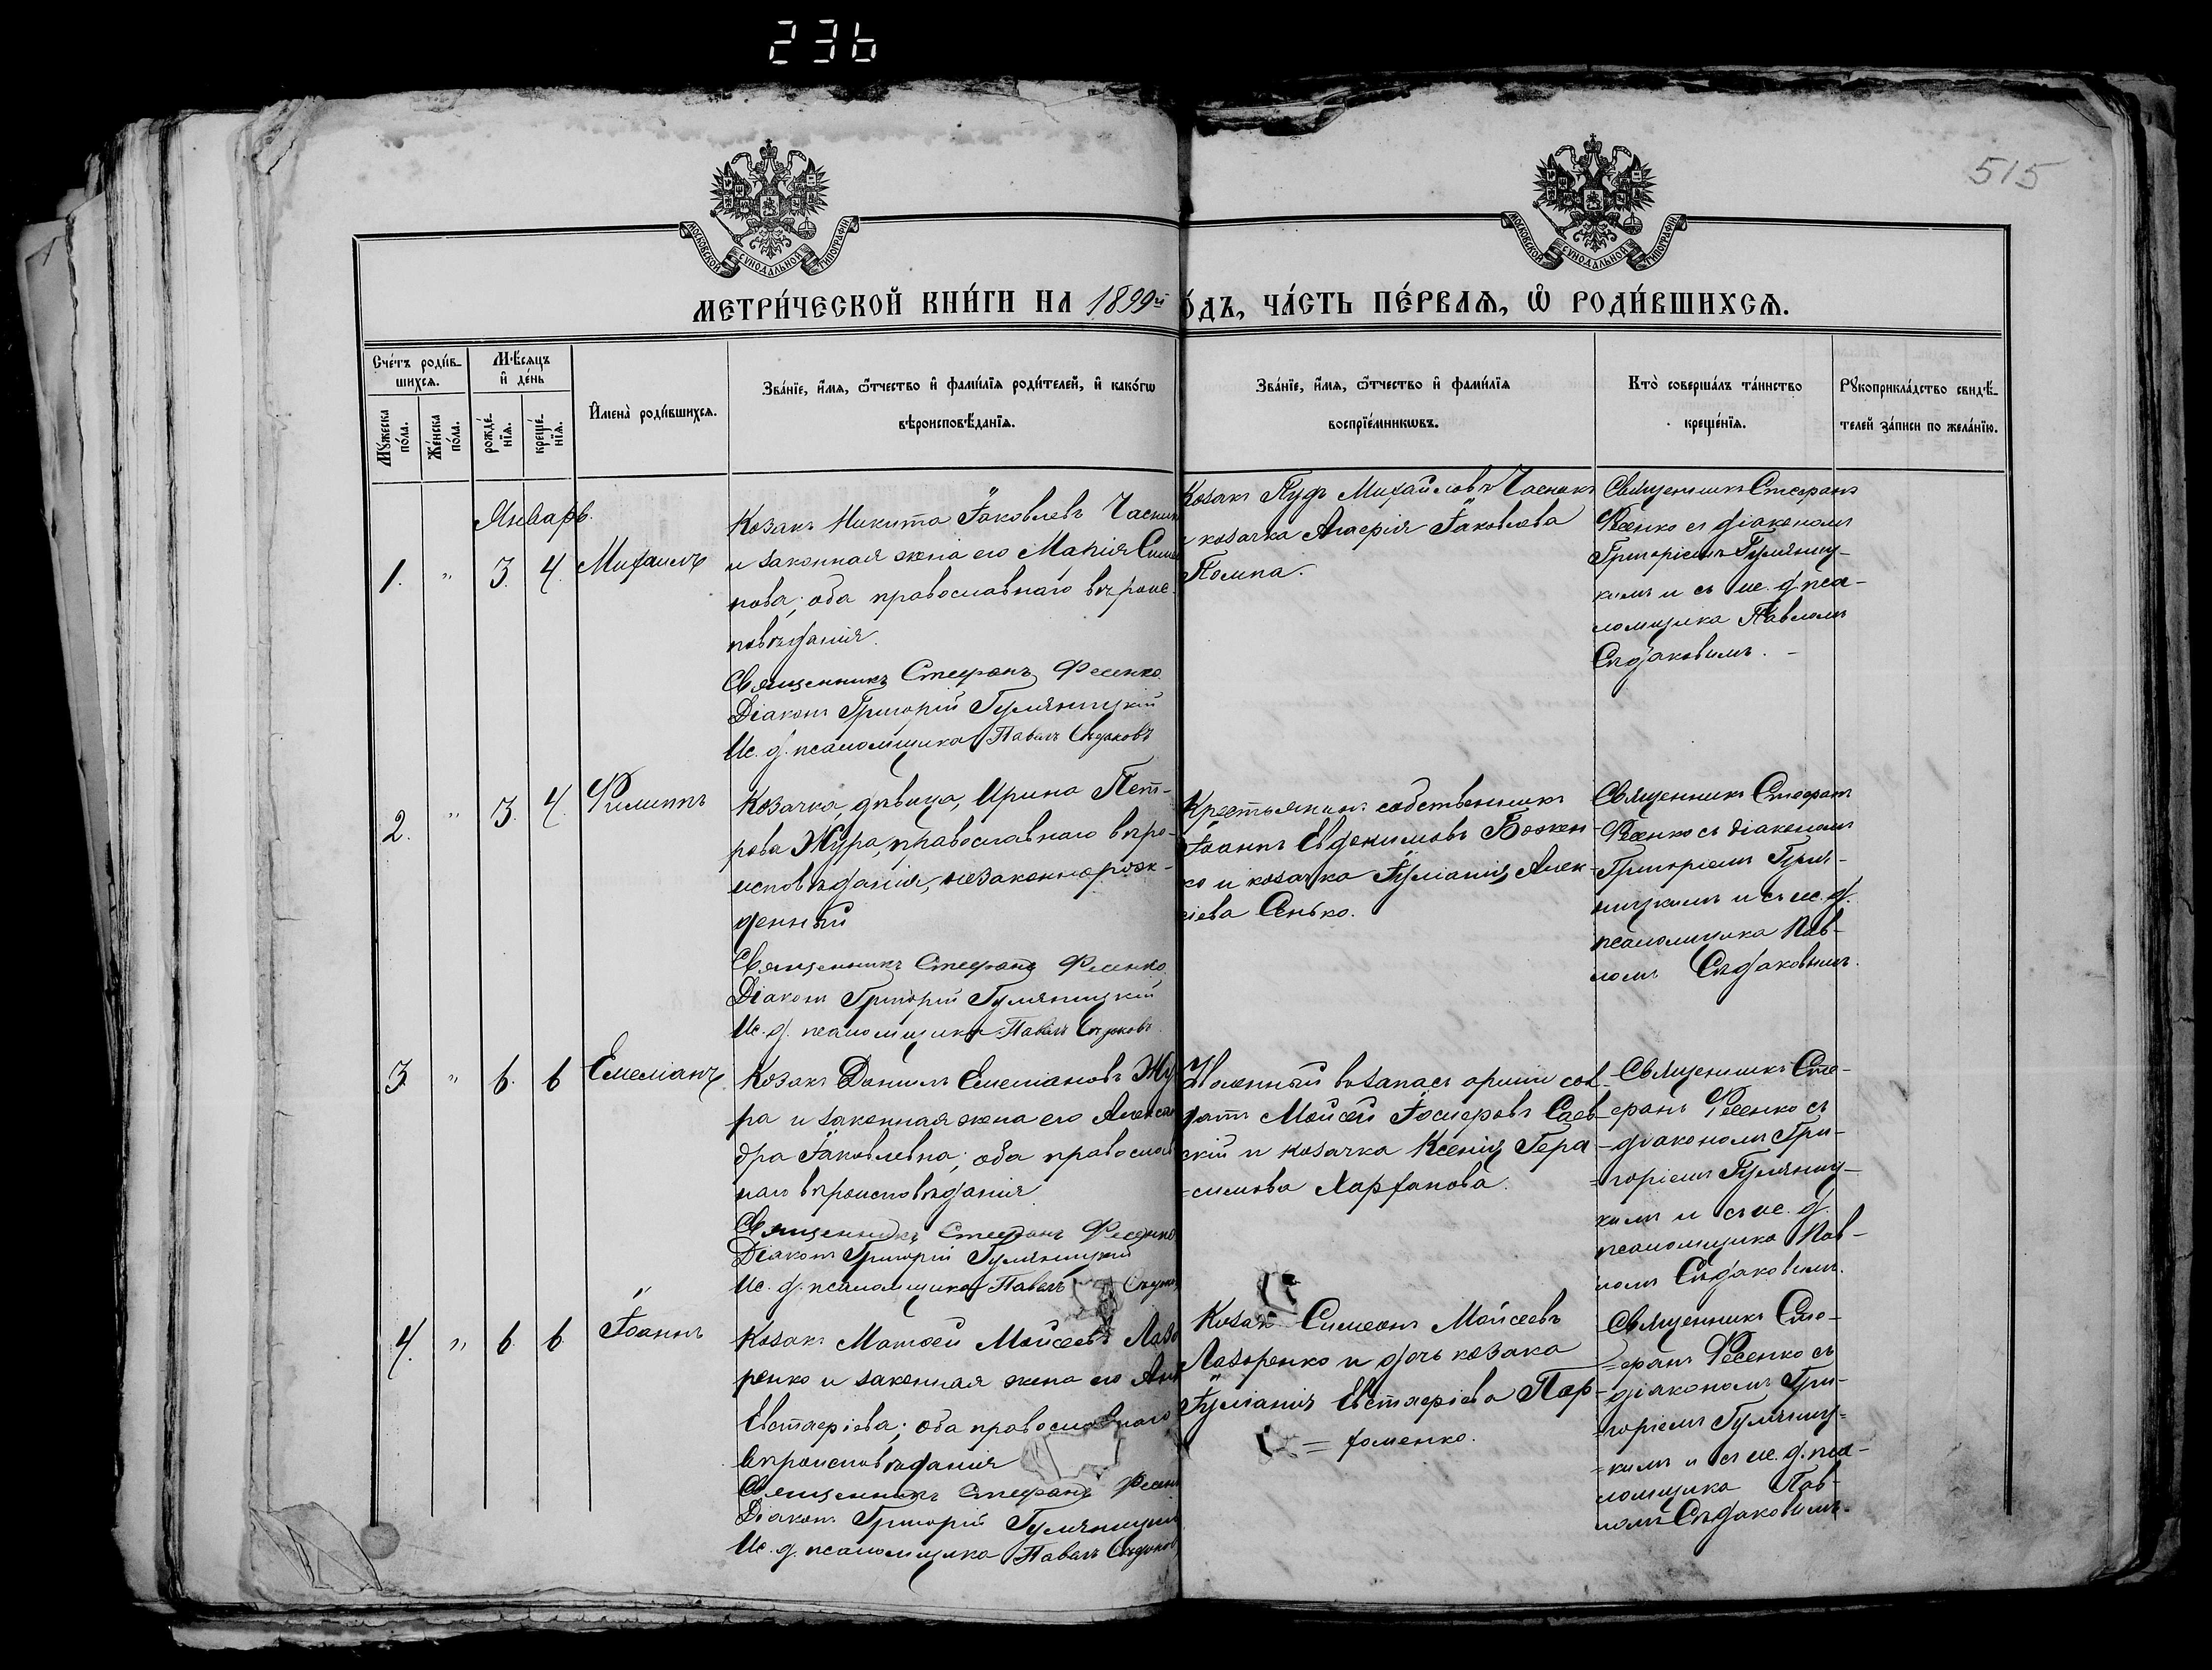 236
515
МОСКОВСКОЙ СУНОДАЛЬНОЙ ТИПОГРАФІИ
МОСКОВСКОЙ СУНОДАЛЬНОЙ ТИПОГРАФІИ
МЕТРИ́ЧЕСКОЙ КНИ́ГИ НА 1899й
О́ДЪ, ЧА́СТЬ ПЕ́РВАѦ, Ѽ РОДИ́ВШИХСѦ.
Сче́тъ роди́в-
шихсѧ.
Мꙋ́жеска
по́ла.
Же́нска
по́ла.
Мѣ́сѧцъ
и҆ де́нь
рожде́-
нїѧ.
креще́-
нїѧ.
И҆мена̀ роди́вшихсѧ.
Зва́нїе, и҆́мѧ, ѻ҆́тчество и҆ фами́лїѧ роди́телей, и҆ како́гѡ
вѣроисповѣ́данїѧ.
Зва́нїе, и҆́мѧ, ѻ҆́тчество и҆ фами́лїѧ
воспрїе́мникѡвъ.
Кто̀ соверша́лъ та́инство
креще́нїѧ.
Рꙋкоприкла́дство свидѣ́-
телей за́писи по жела́нїю.
Январь.
1. " 3. 4. Михаилъ
Козакъ Никита Іаковлевъ Часник
и законная жена его Марія Симе
нова; оба православнаго вѣроис-
повѣданія.
Священникъ Стефанъ Фесенко
Діаконъ Григорій Гуляницкій
Ис. д. псаломщика Павелъ Сѣдаковъ
Козакъ Михайловъ Часникъ
и козачка Іаковлева
Священникъ Стефанъ
Фесенко съ діакономъ
Григоріемъ Гуляниц-
кимъ и съ ис. д. пса-
ломщика Павломъ
Сѣдаковымъ. -
2. " 3. 4. Филиппъ
Козачка, дѣвица, Ирина Пет-
рова Жура, православнаго вѣро-
исповѣданія, незаконнорож-
денный
Священникъ Стефанъ Фесенко
Діаконъ Григорій Гуляницкій
Ис. д. псаломщика Павелъ Сѣдаковъ
Крестьянинъ собственникъ
Іоаннъ Евдокимовъ Божен-
ко и козачка Іуліанія Алек-
сіева Сенько.
Священникъ Стефанъ
Фесенко съ діакономъ
Григоріемъ Гуля-
ницкимъ и съ ис. д.
псаломщика Пав-
ломъ Сѣдаковымъ.
3. " 6. 6 Емеліанъ
Козакъ Даніилъ Емеліановъ Жу
ра и законная жена его Алексан
дра Іаковлевна; оба православ
наго вѣроисповѣданія
Священникъ Стефанъ Фесенко
Діаконъ Григорій Гуляницкій
Ис. д. псаломщика Павелъ Сѣдако
Уволенный въ запасъ арміи сол-
датъ Моисей Іосифовъ
скій и козачка Ксенія Гера-
=симова
Священникъ Сте-
фанъ Фесенко съ
діакономъ Гри-
=горіемъ Гуляниц-
кимъ и съ ис. д.
псаломщика Пав-
ломъ Сѣдаковымъ.
4. " 6. 6 Іоаннъ
Козакъ Матѳей Моисеевъ Лазо
ренко и законная жена его Анн
Евстафіева; оба православнаго
вѣроисповѣданія
Священникъ Стефанъ Фесен
Діаконъ Григорій Гуляницкій
Ис. д. псаломщика Павелъ Сѣдаков
Козакъ Симеонъ Моисеевъ
Лазоренко и дочь козака
Іуліанія Евстафіева Пар-
=хоменко.
Священникъ Сте-
=фанъ Фесенко съ
діакономъ Гри-
=горіемъ Гуляниц-
=кимъ и съ ис. д. пса-
ломщика Пав-
ломъ Сѣдаковымъ.